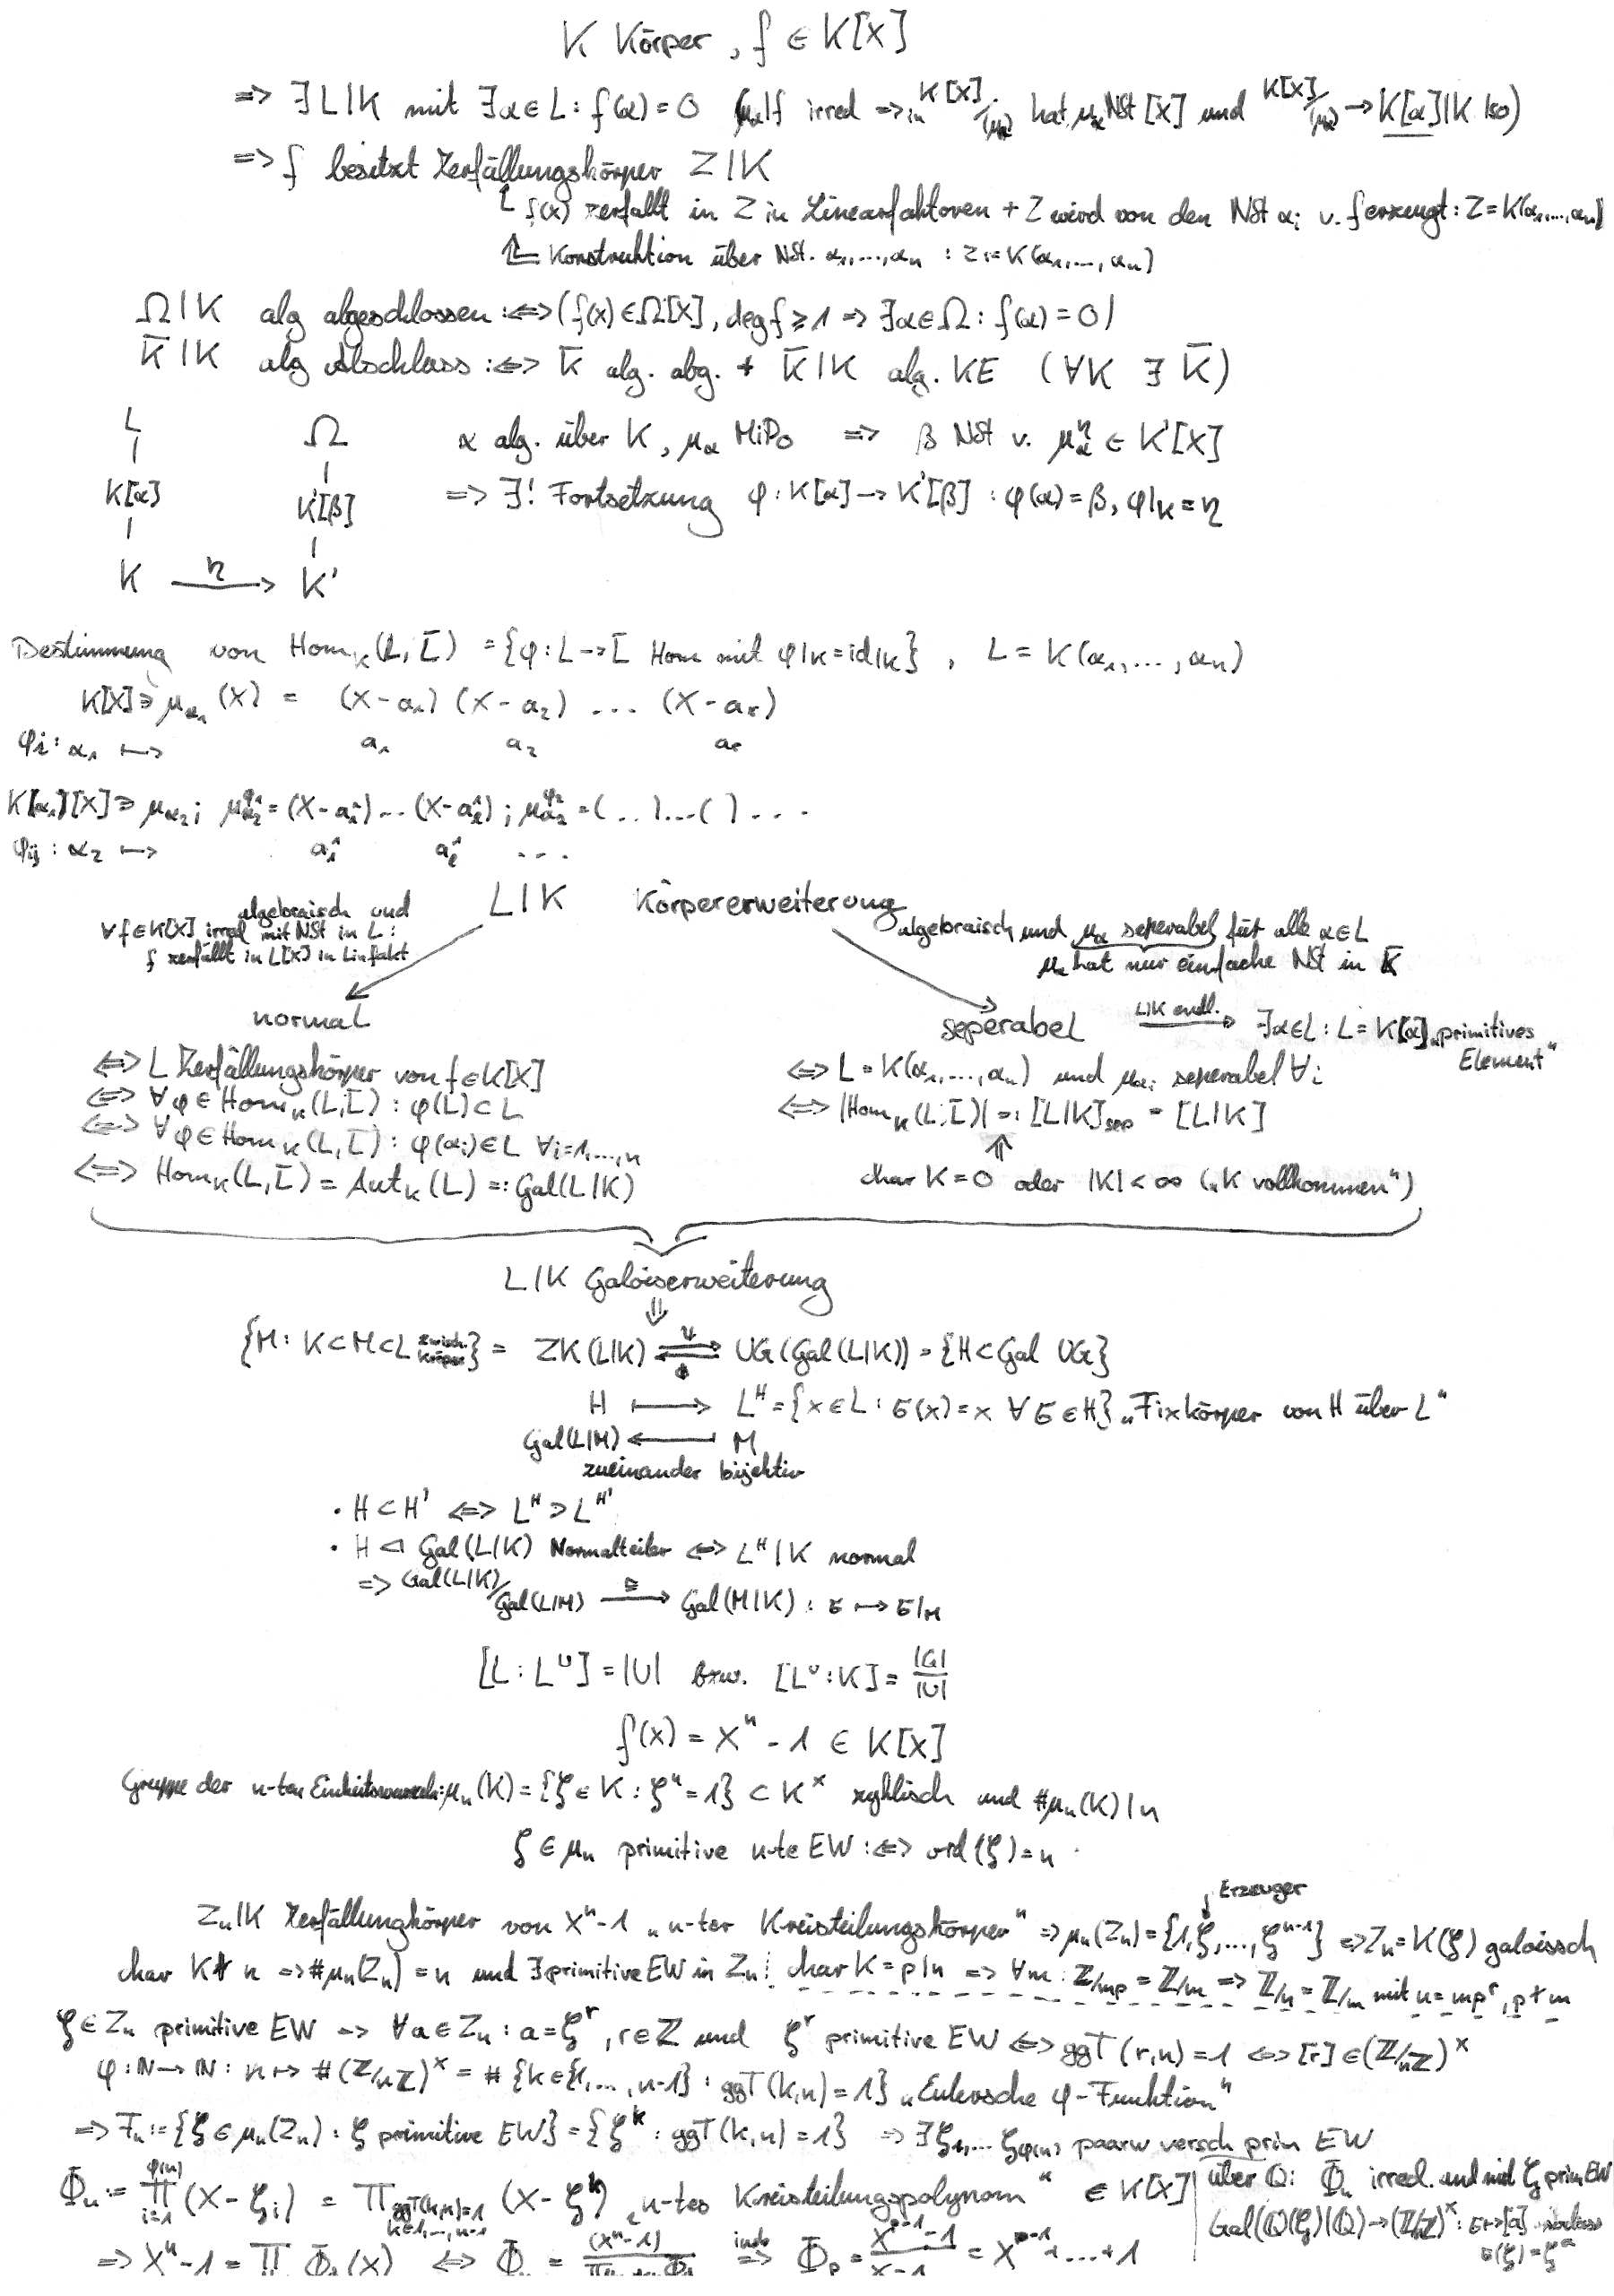 K Körper, f ∈ K[X]
=> ∃ L|K mit ∃α∈L: f(α)=0 (μα|f irred => in K[X]/(μα) hat μα NSt [X] und K[X]/(μα) → K[α]|K Iso)
=> f besitzt Zerfällungskörper Z|K
f(x) zerfällt in Z in Linearfaktoren + Z wird von den NSt αi v. f erzeugt: Z=K(α1,...,αn)
Konstruktion über NSt. α1,...,αn : Z:=K(α1,...,αn)
Ω|K alg abgeschlossen :<=> (f(x)∈Ω[X], deg f ≥ 1 => ∃α∈Ω: f(α)=0)
K̄|K alg Abschluss :<=> K̄ alg. abg. + K̄|K alg. KE (∀K ∃ K̄)
L Ω α alg. über K, μα MiPo => β NSt v. μα^η ∈ K'[X]
K[α] K'[β] => ∃! Fortsetzung φ: K[α] → K'[β] : φ(α)=β, φ|K=η
K —η→ K'
Bestimmung von HomK(L,L̄) = {φ: L→L̄ Hom mit φ|K=id|K}, L=K(α1,...,αn)
K[X]∋ μα1(X) = (X-a1)(X-a2) ... (X-ar)
φi: α1 ↦ a1 a2 ar
K[α1][X]∋ μα2; μα2^φ1 = (X-a1^1)...(X-aℓ^1); μα2^φ2 = (..)...( ) ...
φij: α2 ↦ a1^1 aℓ^1 ...
L|K Körpererweiterung
algebraisch und
∀f∈K[X] irred mit NSt in L:
f zerfällt in L[X] in Linfakt
algebraisch und μα seperabel für alle α∈L
μα hat nur einfache NSt in K̄
normal
<=> L Zerfällungskörper von f∈K[X]
<=> ∀φ∈HomK(L,L̄): φ(L)⊂L
<=> ∀φ∈HomK(L,L̄): φ(αi)∈L ∀i=1,...,n
<=> HomK(L,L̄) = AutK(L) =: Gal(L|K)
seperabel —L|K endl.→ ∃α∈L: L=K[α] „primitives Element"
<=> L=K(α1,...,αn) und μαi seperabel ∀i
<=> |HomK(L,L̄)| =: [L|K]sep = [L|K]
⇑
char K=0 oder |K|<∞ („K vollkommen")
L|K Galoiserweiterung
⇓
{M: K⊂M⊂L Zwisch. körper} = ZK(L|K) ⇄ UG(Gal(L|K)) = {H<Gal UG}
H ↦ L^H = {x∈L: σ(x)=x ∀σ∈H} „Fixkörper von H über L"
Gal(L|M) ⟵ M
zueinander bijektiv
• H⊂H' <=> L^H ⊃ L^H'
• H ⊲ Gal(L|K) Normalteiler <=> L^H|K normal
=> Gal(L|K)/Gal(L|M) —≅→ Gal(M|K): σ ↦ σ|M
[L:L^U]=|U| bzw. [L^U:K]=|G|/|U|
f(x) = X^n - 1 ∈ K[X]
Gruppe der n-ten Einheitswurzeln: μn(K)={ζ∈K: ζ^n=1} ⊂ K^× zyklisch und #μn(K)|n
ζ∈μn primitive n-te EW :<=> ord(ζ)=n
Erzeuger
Zn|K Zerfällungkörper von X^n-1 „n-ter Kreisteilungskörper" => μn(Zn)={1,ζ,...,ζ^n-1} => Zn=K(ζ) galoissch
char K∤n => #μn(Zn)=n und ∃ primitive EW in Zn; char K=p|n => ∀m: Z/mp = Z/m => Z/n = Z/m mit n=mp^r, p∤m
ζ∈Zn primitive EW => ∀a∈Zn: a=ζ^r, r∈Z und ζ^r primitive EW <=> ggT(r,n)=1 <=> [r]∈(Z/nZ)^×
φ: N→N: n ↦ #(Z/nZ)^× = #{k∈{1,...,n-1}: ggT(k,n)=1} „Eulersche φ-Funktion"
=> Fn:={ζ∈μn(Zn): ζ primitive EW}={ζ^k: ggT(k,n)=1} => ∃ζ1,...ζφ(n) paarw versch prim EW
Φn := ∏_{i=1}^{φ(n)} (X-ζi) = ∏_{ggT(k,n)=1, k∈1,...,n-1} (X-ζ^k) „n-tes Kreisteilungspolynom" ∈ K[X]
über Q: Φn irred. und mit ζ prim EW
Gal(Q(ζ)|Q) → (Z/nZ)^×: σ↦[a] sodass
σ(ζ)=ζ^a
=> X^n-1 = ∏ Φd(X) <=> Φn = (X^n-1)/∏ Φd —insb=> Φp = (X^p-1)/(X-1) = X^p-1+...+1